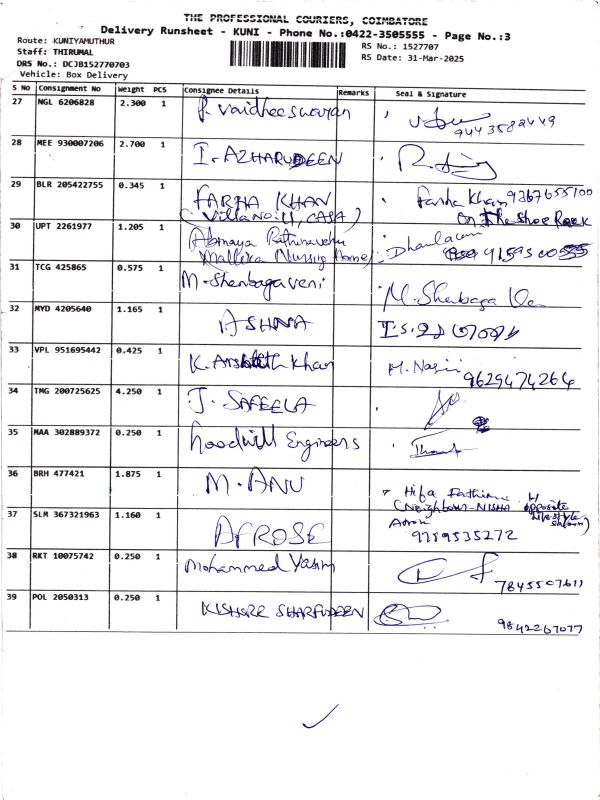 THE PROFESSIONAL COURIERS, COIMBATORE
Delivery Runsheet - KUNI - Phone No.:0422-3505555 - Page No.:3
Route: KUNIYAMUTHUR
Staff: THIRUMAL
DRS No.: DCJB152770703
Vehicle: Box Delivery
RS No.: 1527707
RS Date: 31-Mar-2025
S No Consignment No Weight PCS Consignee Details Remarks Seal & Signature
27 NGL 6206828 2.300 1 P. Vaidheeswaran
9443582449
28 MEE 930007206 2.700 1 I. AZHARUDEEN
29 BLR 205422755 0.345 1 FARHA KHAN Farha Khan 9367655100
(Villa No: 11, CASA) On The Shoe Rack
30 UPT 2261977 1.205 1 Abinaya
Mallika Nursing Home
31 TCG 425865 0.575 1 M. Shenbagaveni M. Shenbaga
32 MYD 4205640 1.165 1 ASHNA
33 VPL 951695442 0.425 1 K. Khan 9629474264
34 TMG 200725625 4.250 1 J. SAFEELA
35 MAA 302889372 0.250 1 Goodwill Engineers
36 BRH 477421 1.875 1 M. ANU
Hifa Fathima
(Neighbour-NISHA opposite
37 SLM 367321963 1.160 1 AFROSE
9789535272
38 RKT 10075742 0.250 1 Mohammed Yasin
7845507611
39 POL 2050313 0.250 1 KISHORE SHARFUDEEN
9842267077